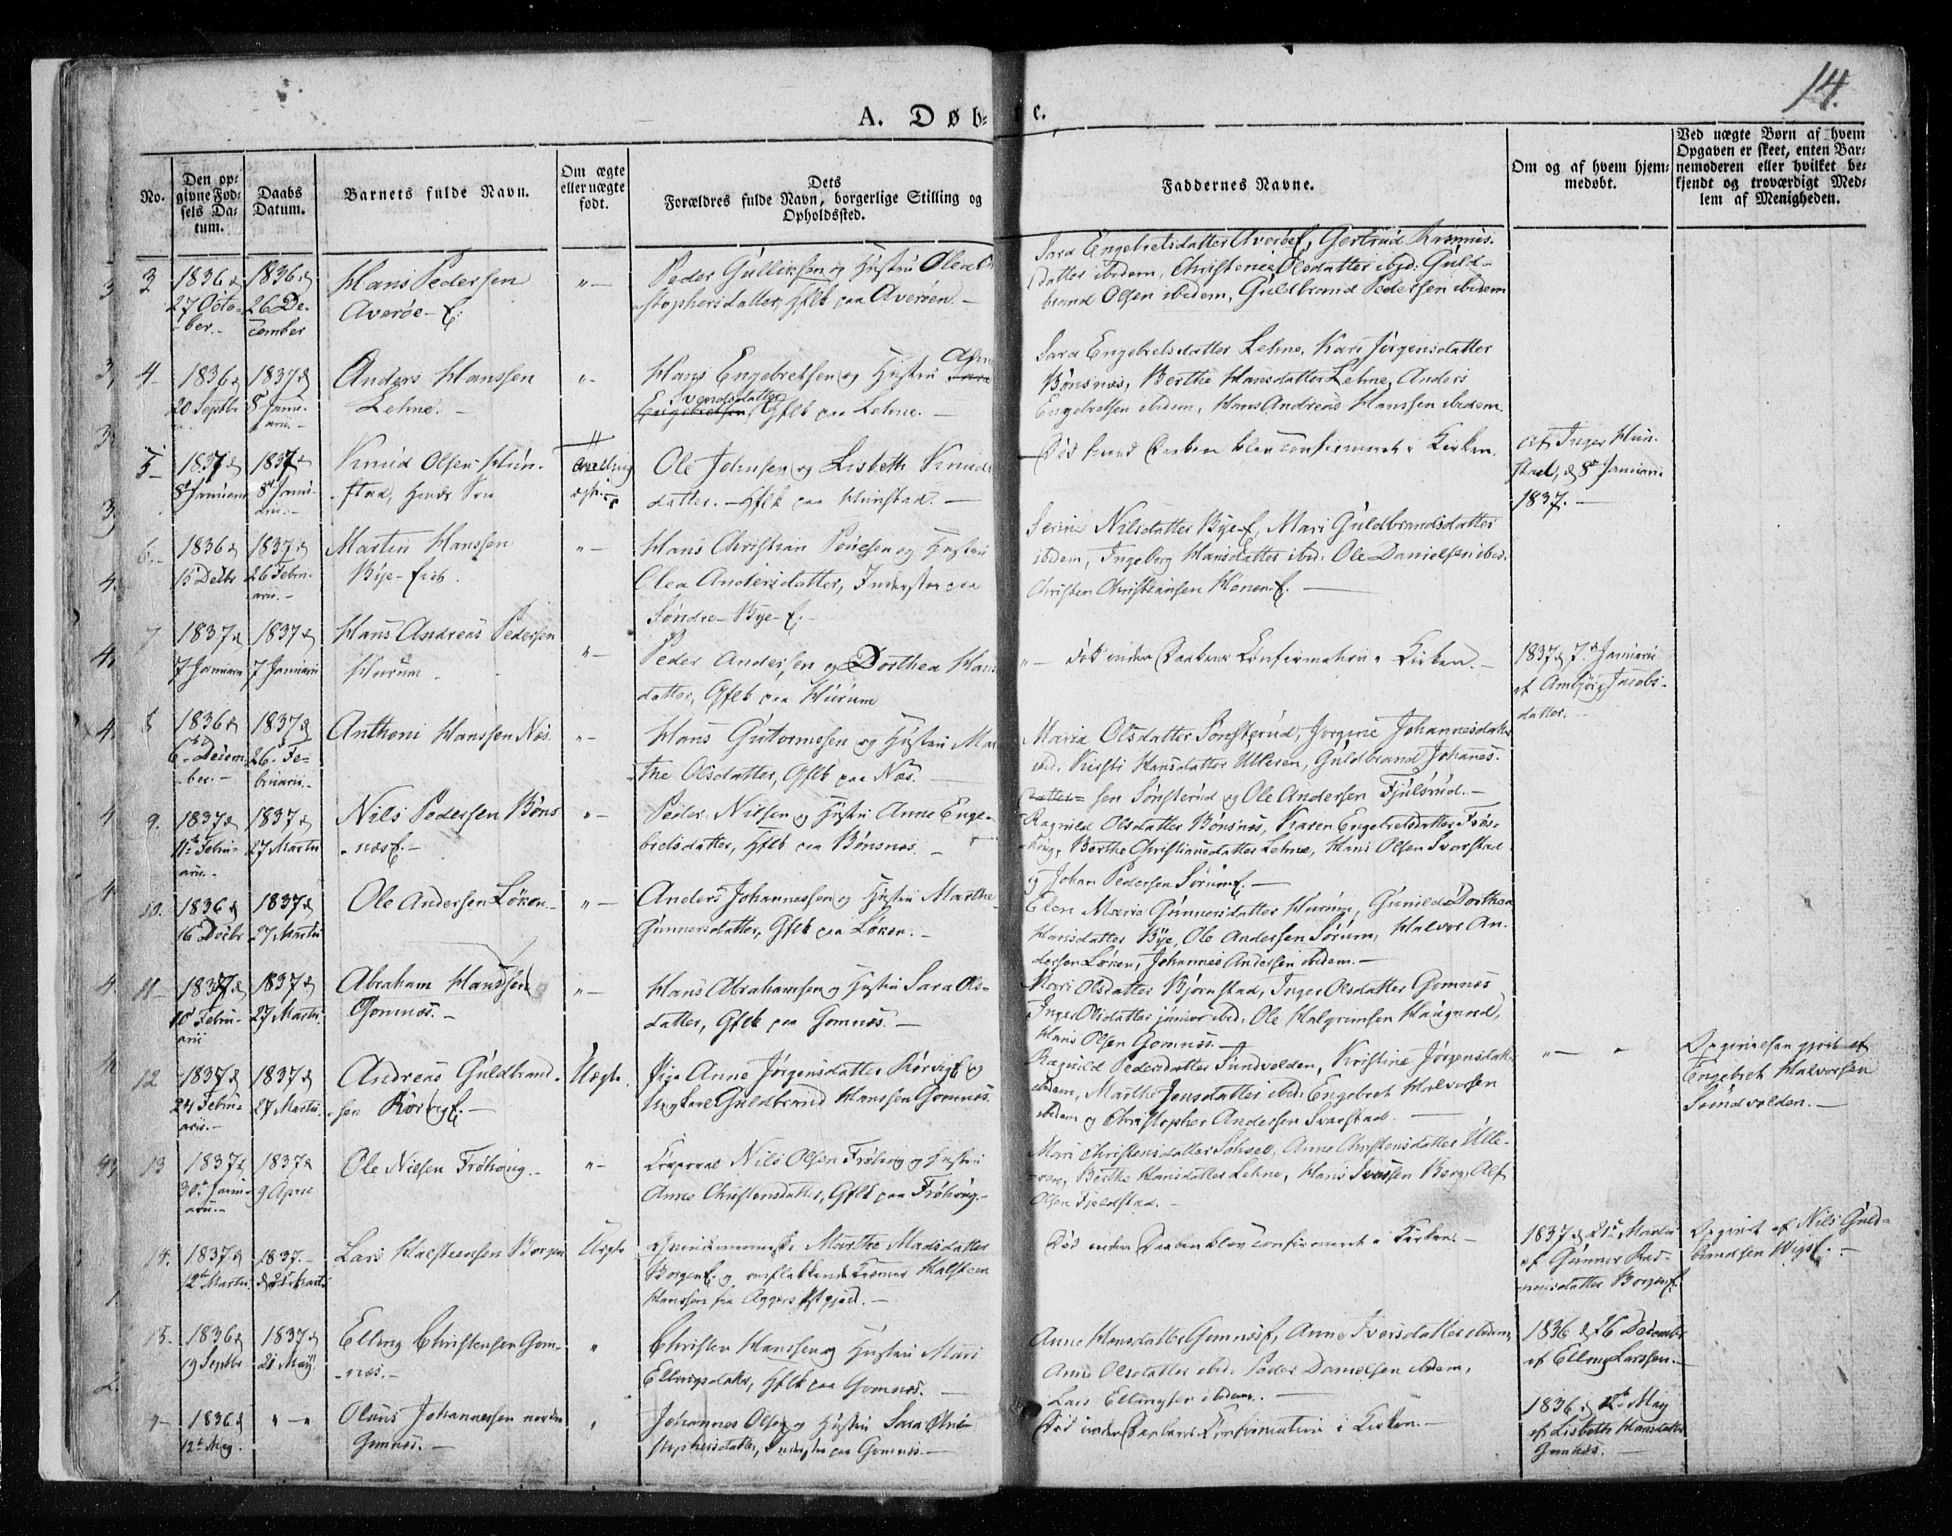 14.
A. Døb-
e.
No.
Den op-
givne Fød-
sels Da-
tum.
Daabs
Datum.
Barnets fulde Navn.
Om ægte
eller uægte
født.
Dets
Forældres fulde Navn, borgerlige Stilling og
Opholdssted.
Faddernes Navne.
Om og af hvem hjem-
medøbt.
Ved uægte Børn af hvem
Opgaven er skeet, enten Bar-
nemoderen eller hvilket be-
kjendt og troværdigt Med-
lem af Menigheden.
3
1836
27 Octo-
ber.
1836
26 De-
cember
Hans Pedersen
Averøe
Peder Gulliksen og Hustru Olea
stophersdatter, Gflk paa Averøen.
Sara Engebretsdatter Averøe, Gertrud Rasmus-
datter ibidem, Christence Olsdatter ibid. Guld-
brand Olsen ibidem, Guldbrand Pedersen ibidem
4
1836
20 Septbr
1837
8 Janu-
arii
Anders Hanssen
Lehne.
Hans Engebretsen og Hustru
Svendsdatter Gflk paa Lehne.
Sara Engebretsdatter Lehne, Kari Jørgensdatter
Bønsnæs, Berthe Hansdatter Lehne, Anders
Engebretsen ibidem, Hans Andreas Hanssen ibidem.
5
1837
8 Januarii
1837
8 Janu-
arii
Knud Olsen Hun-
stad,
Ole Johnsen og Lisbeth Knuds
datter. Gflk paa Hunstad.
Daaben blev confirmeret i Kirken.
af Inger Hun-
stad, 8 Januari
1837.
6
1836
15 Decbr
1837
26 Febru-
arii
Martin Hanssen
Bye-eie.
Hans Christian Pouelsen og Hustru
Olea Andersdatter, Inderster paa
Søndre Bye
Nilsdatter Bye, Mari Guldbrandsdatter
ibidem, Ingeborg Hansdatter ibid. Ole Danielsen ibid.
Christen Christiansen Honen
7
1837
7 Januarii
1837
7 Januarii
Hans Andreas Pedersen
Hurum.
Peder Andersen og Dorthea Hans
datter, Gflk paa Hurum
Død inden Daabens Confirmation i Kirken.
1837 7 Januarii
af Ambjør Jacobs-
datter.
8
1836
6 Decem-
ber.
1837
26 Fe-
bruarii.
Anthoni Hanssen Næs.
Hans Guttormsen og Hustru Mar
the Olsdatter, Gflk paa Næs.
Maria Olsdatter Sønsterud, Jørgine Johannesdatter
ibid. Kirsti Hansdatter Ulleren, Guldbrand Johannes-
sen Sønsterud og Ole Andersen Fjulsrud.
9.
1837
11 Febru-
arii.
1837
27 Martii
Nils Pedersen Bøns
næs.
Peder Nilsen og Hustru Anne Enge-
bretsdatter, Gflk paa Bønsnæs.
Ragnild Olsdatter Bønsnæs, Karen Engebretsdatter Frøs-
houg, Berthe Christiansdatter Lehne, Hans Olsen Svarstad
og Johan Pedersen Sørum.
10.
1836
16 Decbr
1837
27 Martii
Ole Andersen Løken
Anders Johannessen og Hustru Marthe
Gunnersdatter, Gflk paa Løken.
Elen Marie Gunnersdatter Hurum, Gunild Dorthea
Hansdatter Bye, Ole Andersen Sørum, Halvor An-
dersen Løken, Johannes Andersen ibidem.
11
1837
10 Febru-
arii
1837
27 Martii
Abraham Hanssen
Gomnæs.
Hans Abrahamsen og Hustru Sara Ols-
datter, Gflk paa Gomnæs.
Kari Olsdatter Bjørnstad, Inger Olsdatter Gomnæs
Inger Olsdatter junior ibid. Ole Halgrimsen Haugerud,
Hans Olsen Gomnæs.
12
1837
24 Febru-
arii.
1837
27 Martii
Andreas Guldbrand-
sen Rørvig.
Uægte.
Pige Anne Jørgensdatter Rørvig og
Ungkarl Guldbrand Hanssen Gomnæs.
Ragnild Pedersdatter Sundvolden, Kristine Jørgensdatter
ibidem, Marthe Jensdatter ibid. Engebret Halvorsen
ibidem og Christopher Andersen Svarstad.
Opgivelsen gjort af
Engebret Halvorsen
Sundvolden.
13
1837
30 Janu-
arii.
1837
9 April
Ole Nielsen Frøhoug.
Corporal Nils Olsen Frøhoug og Hustru
Anne Christensdatter, Gflk paa Frøhoug.
Mari Christensdatter, Anne Christensdatter Ulle-
ren, Berthe Hansdatter Lehne, Hans Berg, Alf
Olsen Fjeldstad.
14.
1837
12 Martii.
1837.
21 Martii
Lars Halsteensen Borgen
Uægte
Marthe Madsdatter
Borgen og omflakkende Halsteen
Hanssen fra Aggers Præstegjæld.
Død inden Daaben blev confirmeret i Kirken.
1837 21 Martii
af Gunnor Ras-
musdatter Borgen
Opgivet af Nils Guld-
brandsen
15.
1836
19 Septbr
1837
21 May
Elling Christensen Gom-
næs.
Christen Hanssen og Hustru Mari
Ellingsdatter, Gflk paa Gomnæs.
Anne Hansdatter Gomnæs, Anne Iversdatter ibidem,
Anne Olsdatter ibid. Peder Danielsen ibidem,
Lars Ellingsen ibidem.
1836 26 December
af Elling Larssen.
1836
12 May.
Olaus Johannessen nordre
Gomnæs.
Johannes Olsen og Hustru Sara Chri
stophersdatter, Inderster paa Gomnæs
Død inden Daabens Confirmation i Kirken.
1836 12 May
af Lisbeth Hansdatter
Gomnæs.